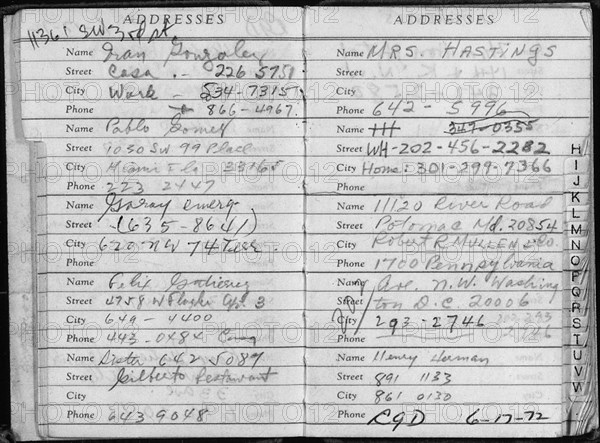 ADDRESSES
11361 SW 3
Name Gonzalez
Street Casa - 226 5751
City Work - 534-7315
Phone 866-4967
Name Pablo Gomez
Street 1050 SW 99 Place
City Miami Fla 33165
Phone 223 2447
Name Garay emerg
Street (635-8641)
City 620 NW 74
Phone
Name Felix Gutierrez
Street 4758 W Flagler 3
City 649-4400
Phone 443-0484
Name 642 5087
Street Gilberto Restaurant
City
Phone 643 9048
ADDRESSES
Name MRS HASTINGS
Street
City
Phone 642-5996
Name HH 347-0355
Street WH-202-456-2282
City Home: 301-299-7366
Phone
Name 11120 River Road
Street Potomac Md. 20854
City Robert R MULLEN & Co.
Phone 1700 Pennsylvania
Name Ave. N.W. Washing
Street ton D.C. 20006
City 293-2746
Phone
Name Henry
Street 891 1133
City 861 0130
Phone 6-17-72
H
I
J
K
L
M
N
O
P
Q
R
S
T
U
V
W